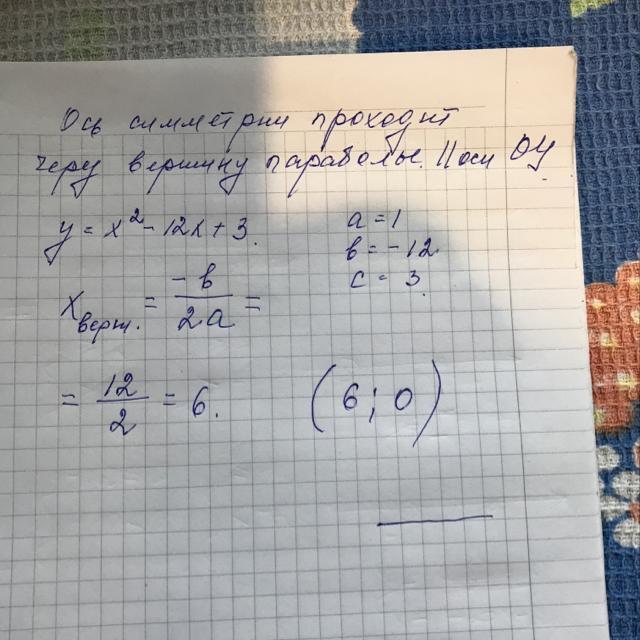 Ось симметрии проходит
через вершину параболы. || оси ОУ.
y = x² - 12x + 3.
a = 1
в = -12
c = 3.
x верш. = -в/2a =
= 12/2 = 6.
(6; 0)